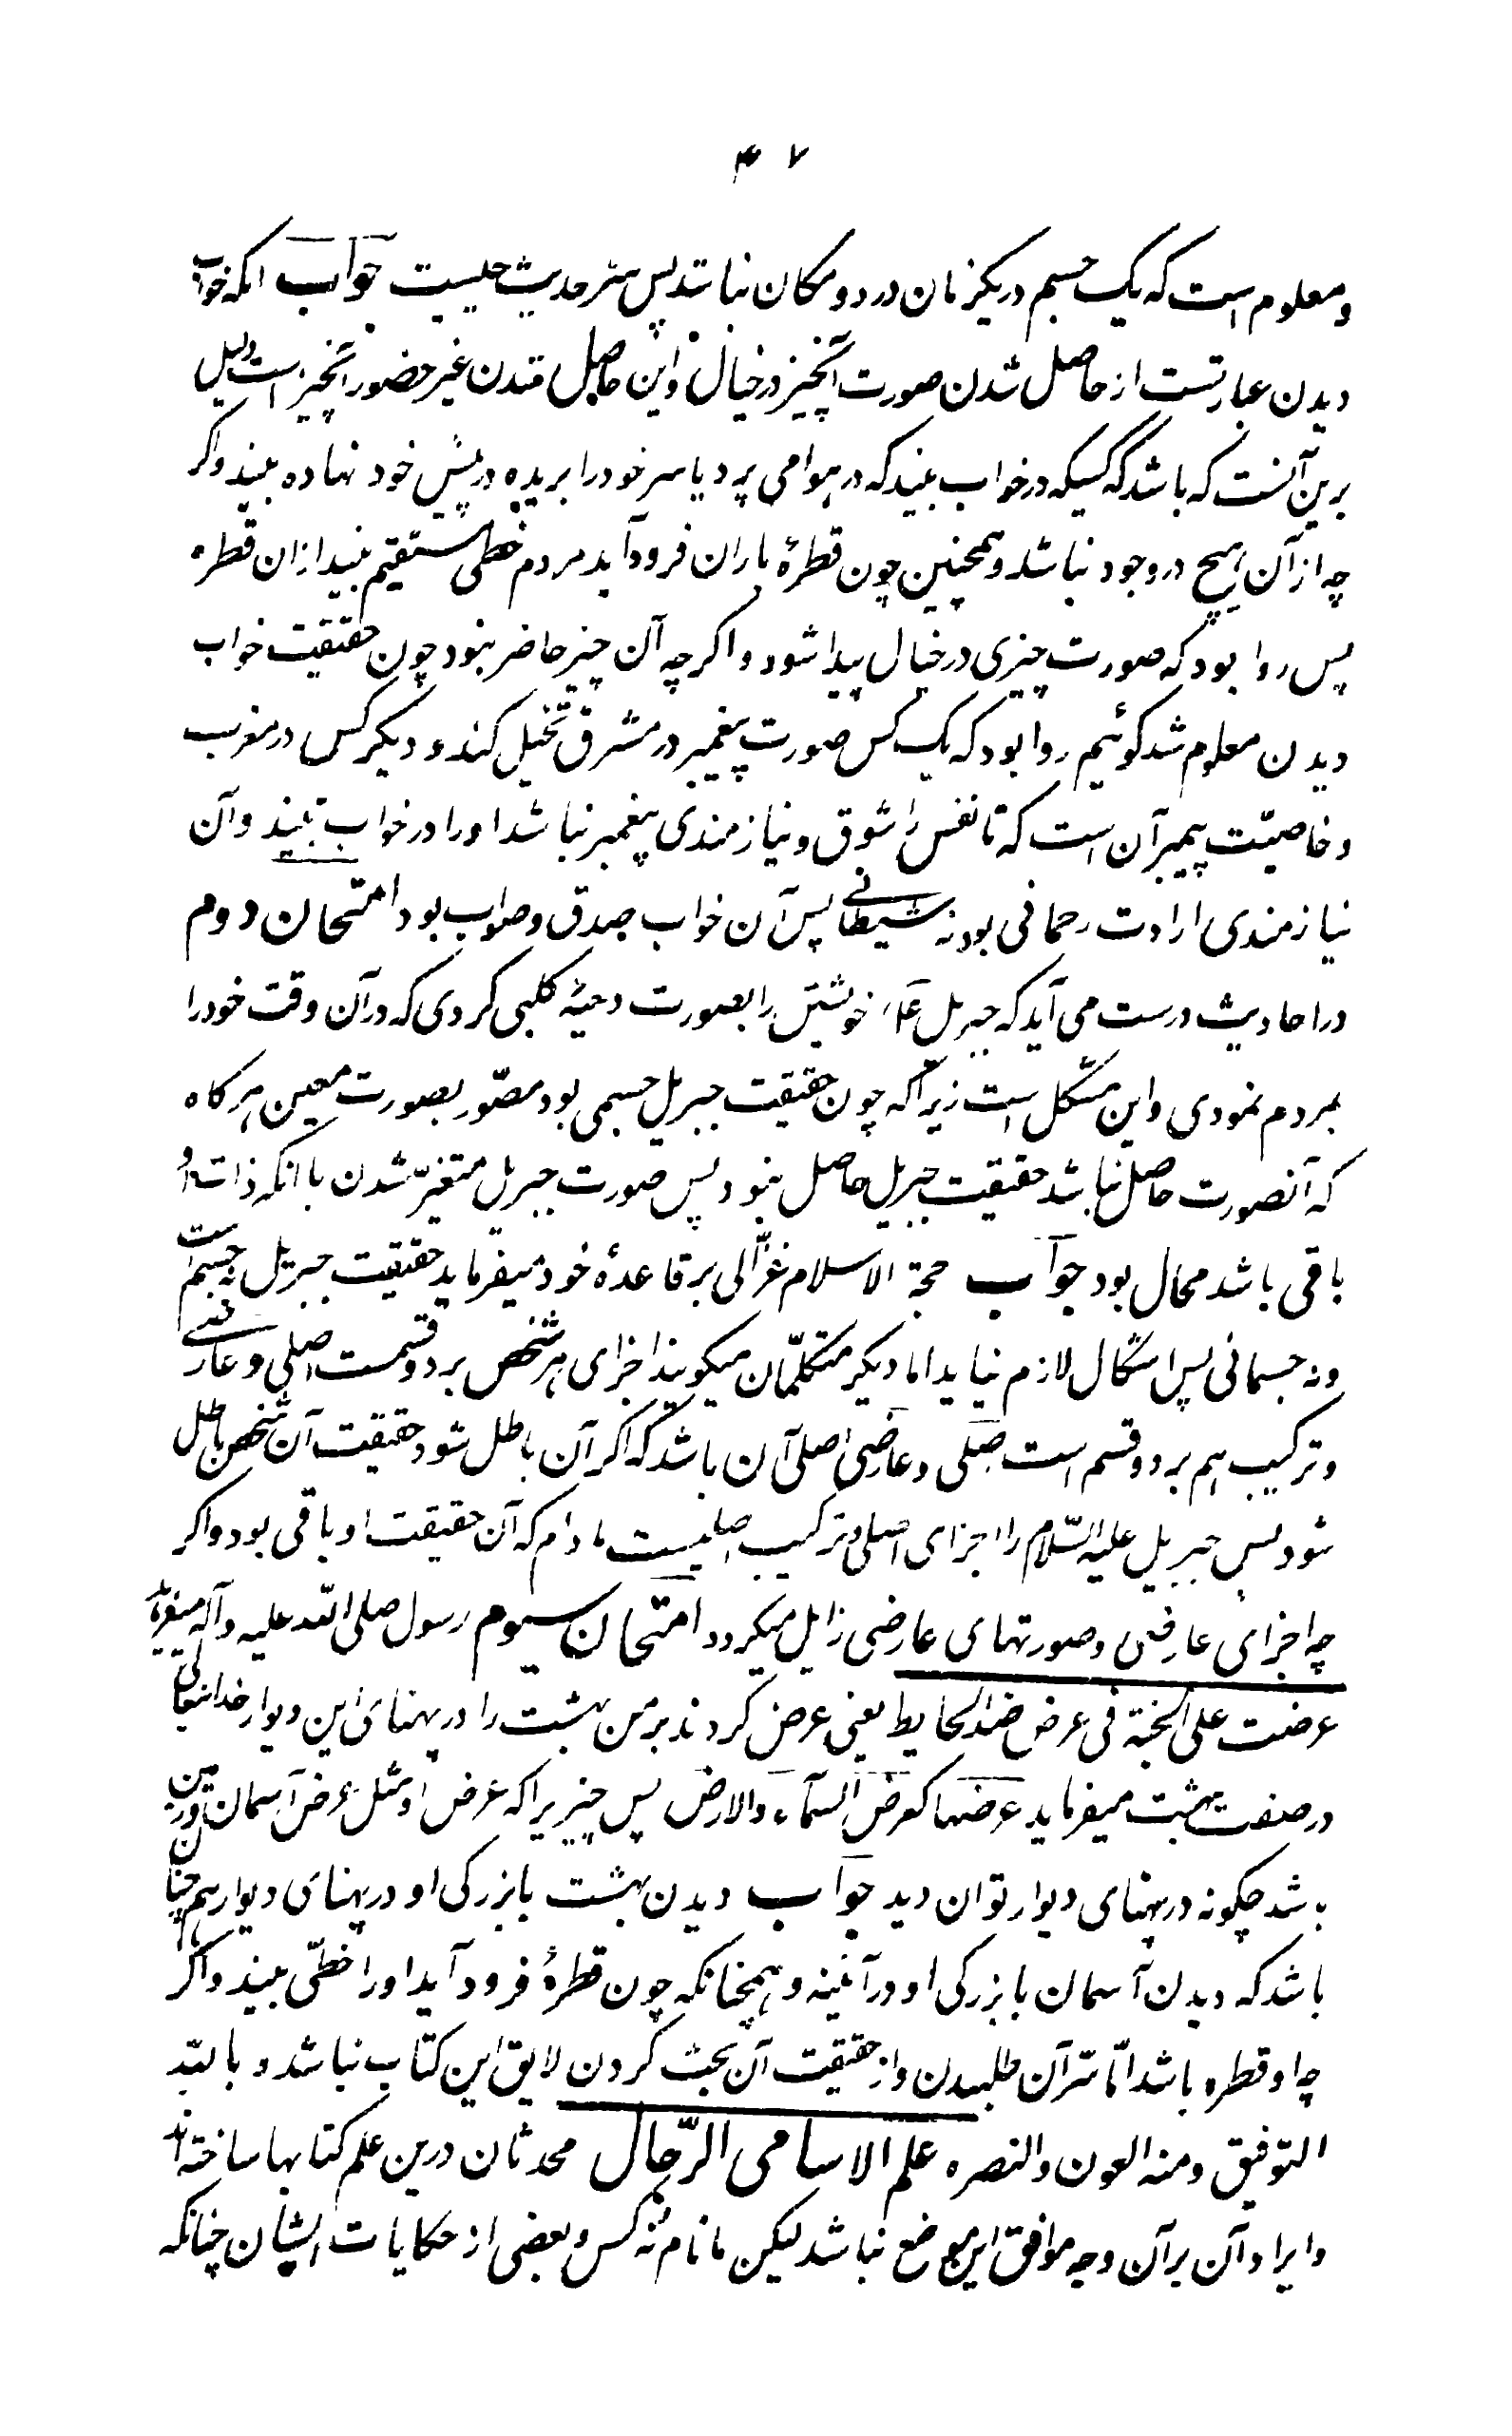 ۴۷
و معلوم است که یک جسم در یکزمان در دو مکان نباشد پس سرّ حدیث چیست جواب انکه خواب
دیدن عبارتست از حاصل شدن صورت آنچیز در خیال و این حاصل شدن غیر حضور آنچیز است دلیل
برین آنست که باشد که کسیکه در خواب بیند که در هوا می پرد یا سر خود را بریده در پیش خود نهاده بیند و اگر
چه از آن هیچ در وجود نباشد و همچنین چون قطرهٔ باران فرود آید مردم خطی مستقیم بیند از ان قطره
پس روا بود که صورت چیزی در خیال پیدا شود و اگر چه آن چیز حاضر نبود چون حقیقت خواب
دیدن معلوم شد کوئیم روا بود که یک کس صورت پیغمبر در مشرق تخیل کند و دیکر کس در مغرب
و خاصیّت پیمبر آن است که تا نفس را شوق و نیازمندی پیغمبر نباشد او را در خواب نبیند و آن
نیازمندی ارادت رحمانی بود نه شیطانی پس آن خواب صدق و صواب بود امتحان دوم
در احادیث درست می آید که جبریل ع خویشتن را بصورت دحیه کلبی کردی که در آن وقت خود را
بمردم نمودی و این مشکل است زیرا که چون حقیقت جبریل جسمی بود مصّور بصورت معین هر کاه
که آنصورت حاصل نباشد حقیقت جبریل حاصل نبود پس صورت جبریل متغیّر شدن با انکه ذات او
باقی باشد محال بود جواب حجة الاسلام غزّالی بر قاعدهٔ خود میفرماید حقیقت جبریل نه جسم است
و نه جسمانی پس اشکال لازم نیاید اما دیکر متکلّمان میکویند اجزای هر شخص بر دو قسمت اصلی و عارضی
و ترکیب هم بر دو قسم است اصلی و عارضی اصلی آن باشد که اکر آن باطل شود حقیقت آن شخص باطل
شود پس جبریل علیه السّلام را اجزای اصلی و ترکیب اصلیست مادام که آن حقیقت او باقی بود و اکر
چه اجزای عارضی و صورتهای عارضی زایل میکردد امتحان سیوم رسول صلی الله علیه و آله میفرماید
عرضت علی الجنة فی عرض هذا الحایط یعنی عرض کردند بر من بهشت را در پهنای این دیوار خدایتعالی
در صفت بهشت میفرماید عرضها کعرض السمآء والارض پس چیزیرا که عرض او مثل عرض آسمان و زمین
باشد چکونه در پهنای دیوار توان دید جواب دیدن بهشت با بزرکی او در پهنای دیوار هم چنان
باشد که دیدن آسمان با بزرکی او در آئینه و همچنانکه چون قطرهٔ فرود آید او را خطّی بیند و اکر
چه او قطره باشد امّا سرّ آن طلبیدن و از حقیقت آن بحث کردن لایق این کتاب نباشد و بالله
التوفیق و منه العون والنصره علم الاسامی الرّجال محدثان درین علم کتابها ساخته اند
و ایراد آن بر آن وجه موافق این موضع نباشد لیکن ما نام نه کس و بعضی از حکایات ایشان چنانکه